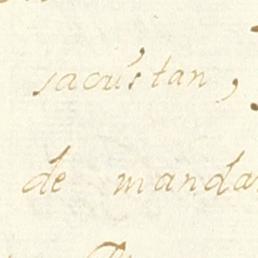 sacristan,
de mandar